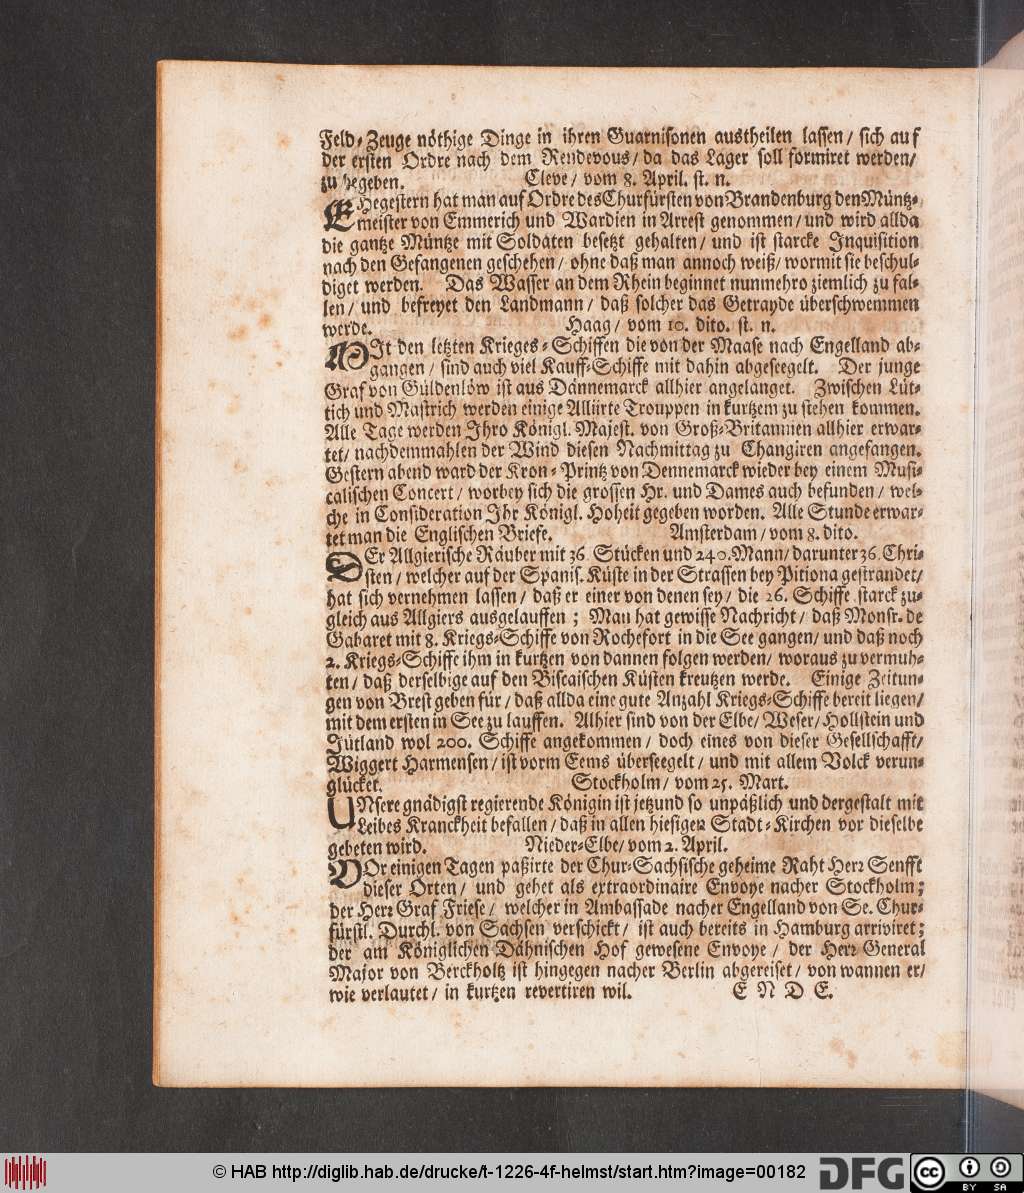 Feld-Zeuge nöthige Dinge in ihren Guarnisonen austheilen lassen/ sich auf
der ersten Ordre nach dem Rendevous/ da das Lager soll formiret werden/
zu begeben. Cleve/ vom 8. April. st. n.
EHegestern hat man auf Ordre des Churfürsten von Brandenburg den Müntz-
meister von Emmerich und Wardien in Arrest genommen/ und wird allda
die gantze Müntze mit Soldaten besetzt gehalten/ und ist starcke Inquisition
nach den Gefangenen geschehen/ ohne daß man annoch weiß/ wormit sie beschul-
diget werden. Das Wasser an dem Rhein beginnet nunmehro ziemlich zu fal-
len/ und befreyet den Landmann/ daß solcher das Getrayde überschwemmen
werde. Haag/ vom 10. dito. st. n.
MIt den letzten Krieges-Schiffen die von der Maase nach Engelland ab-
gangen/ sind auch viel Kauff-Schiffe mit dahin abgeseegelt. Der junge
Graf von Güldenlöw ist aus Dännemarck allhier angelanget. Zwischen Lüt-
tich und Mastrich werden einige Alliirte Trouppen in kurtzem zu stehen kommen.
Alle Tage werden Ihro Königl. Majest. von Groß-Britannien allhier erwar-
tet/ nachdemmahlen der Wind diesen Nachmittag zu Changiren angefangen.
Gestern abend ward der Kron-Printz von Dennemarck wieder bey einem Musi-
calischen Concert/ worbey sich die grossen Hr. und Dames auch befunden/ wel-
che in Consideration Ihr Königl. Hoheit gegeben worden. Alle Stunde erwar-
tet man die Englischen Briefe. Amsterdam/ vom 8. dito.
DEr Allgierische Räuber mit 36. Stücken und 240. Mann/ darunter 36. Chri-
sten/ welcher auf der Spanis. Küste in der Strassen bey Pitiona gestrandet/
hat sich vernehmen lassen/ daß er einer von denen sey/ die 26. Schiffe starck zu-
gleich aus Allgiers ausgelauffen; Man hat gewisse Nachricht/ daß Monsr. de
Gabaret mit 8. Kriegs-Schiffe von Rochefort in die See gangen/ und daß noch
2. Kriegs-Schiffe ihm in kurtzen von dannen folgen werden/ woraus zu vermuh-
ten/ daß derselbige auf den Biscaischen Küsten kreutzen werde. Einige Zeitun-
gen von Brest geben für/ daß allda eine gute Anzahl Kriegs-Schiffe bereit liegen/
mit dem ersten in See zu lauffen. Alhier sind von der Elbe/ Weser/ Hollstein und
Jütland wol 200. Schiffe angekommen/ doch eines von dieser Gesellschafft/
Wiggert Harmensen/ ist vorm Eems überseegelt/ und mit allem Volck verun-
glücket. Stockholm/ vom 25. Mart.
UNsere gnädigst regierende Königin ist jetzund so unpäßlich und dergestalt mit
Leibes Kranckheit befallen/ daß in allen hiesigen Stadt-Kirchen vor dieselbe
gebeten wird. Nieder-Elbe/ vom 2. April.
VOr einigen Tagen paßirte der Chur-Sächsische geheime Raht Herr Senfft
dieser Orten/ und gehet als extraordinaire Envoye nacher Stockholm;
der Herr Graf Friese/ welcher in Ambassade nacher Engelland von Se. Chur-
fürstl. Durchl. von Sachsen verschickt/ ist auch bereits in Hamburg arriviret;
der am Königlichen Dähnischen Hof gewesene Envoye/ der Herr General
Major von Berckholtz ist hingegen nacher Berlin abgereiset/ von wannen er/
wie verlautet/ in kurtzen revertiren wil. E N D E.
© HAB http://diglib.hab.de/drucke/t-1226-4f-helmst/start.htm?image=00182 DFG cc BY SA